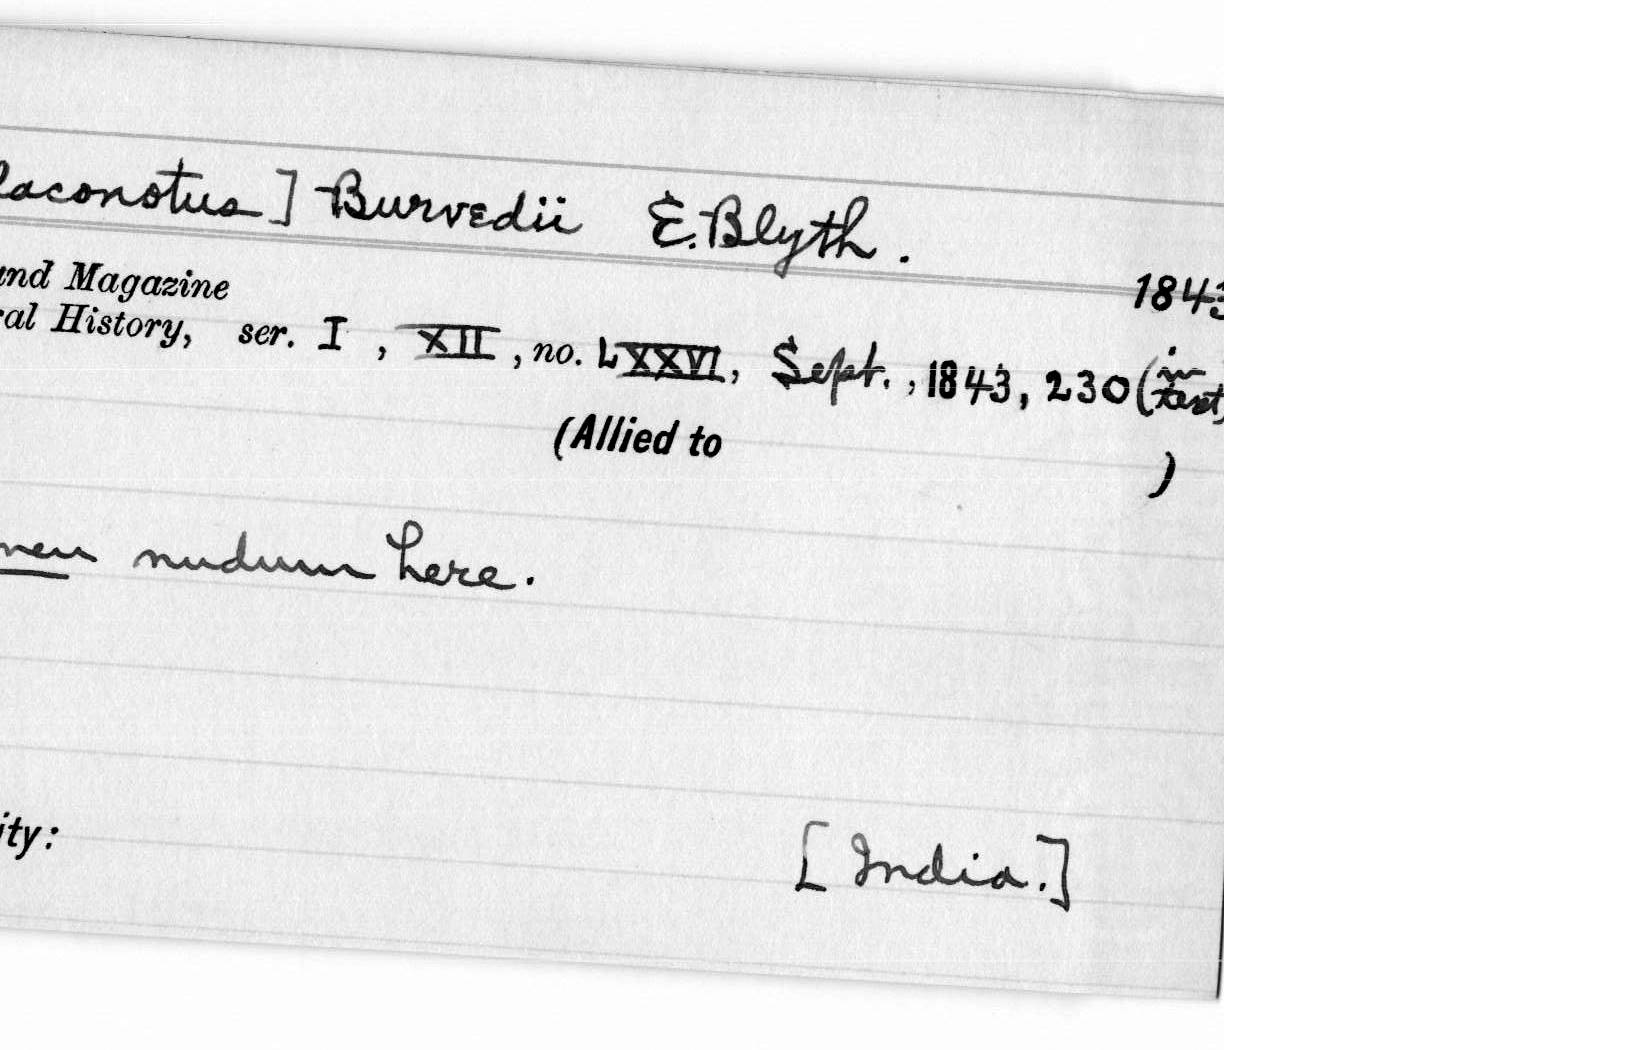 laconotus] Burvedii E. Blyth.
1843
and Magazine
ral History, ser. I, XII, no. LXXVI, Sept., 1843, 230 (in text)
(Allied to )
men nudum here.
ity: [India.]